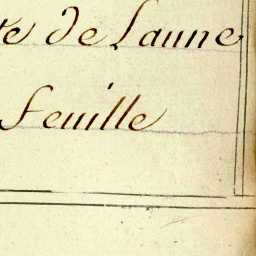 de Laune
feuille